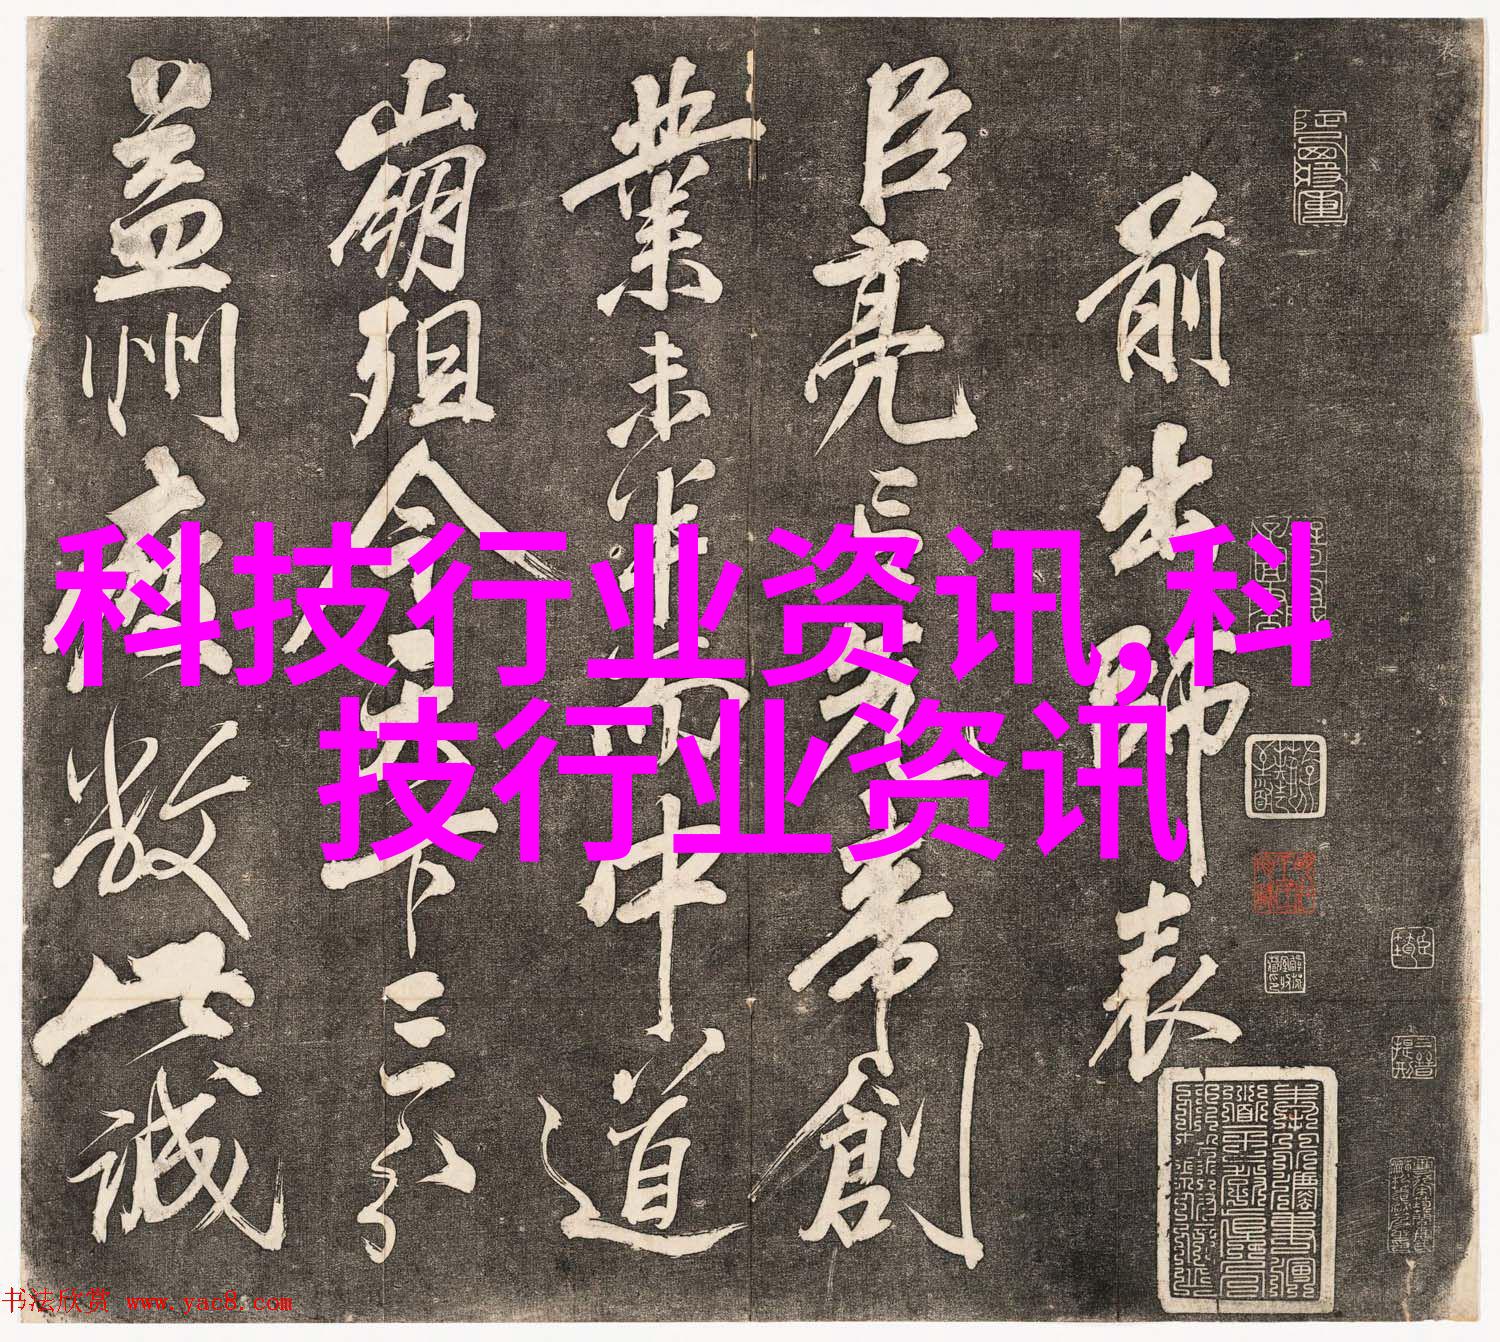 前出師表
臣亮言先帝創
業未半而中道
崩殂今天下三分
益州疲敝此誠
科技行业资讯,科
技行业资讯
书法欣赏 www.yac8.com